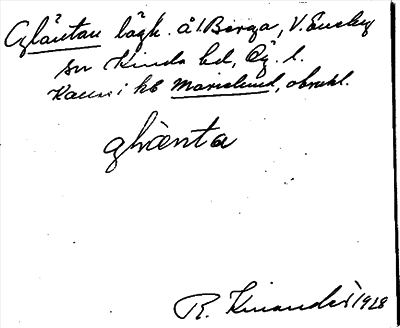 Gläntan lägh. å 1 Berga, V. Eneby
sn Kinda hd, Ög. l.
Kallas i kb Marielund, obruhl.
glänta
R. Kinander 1928